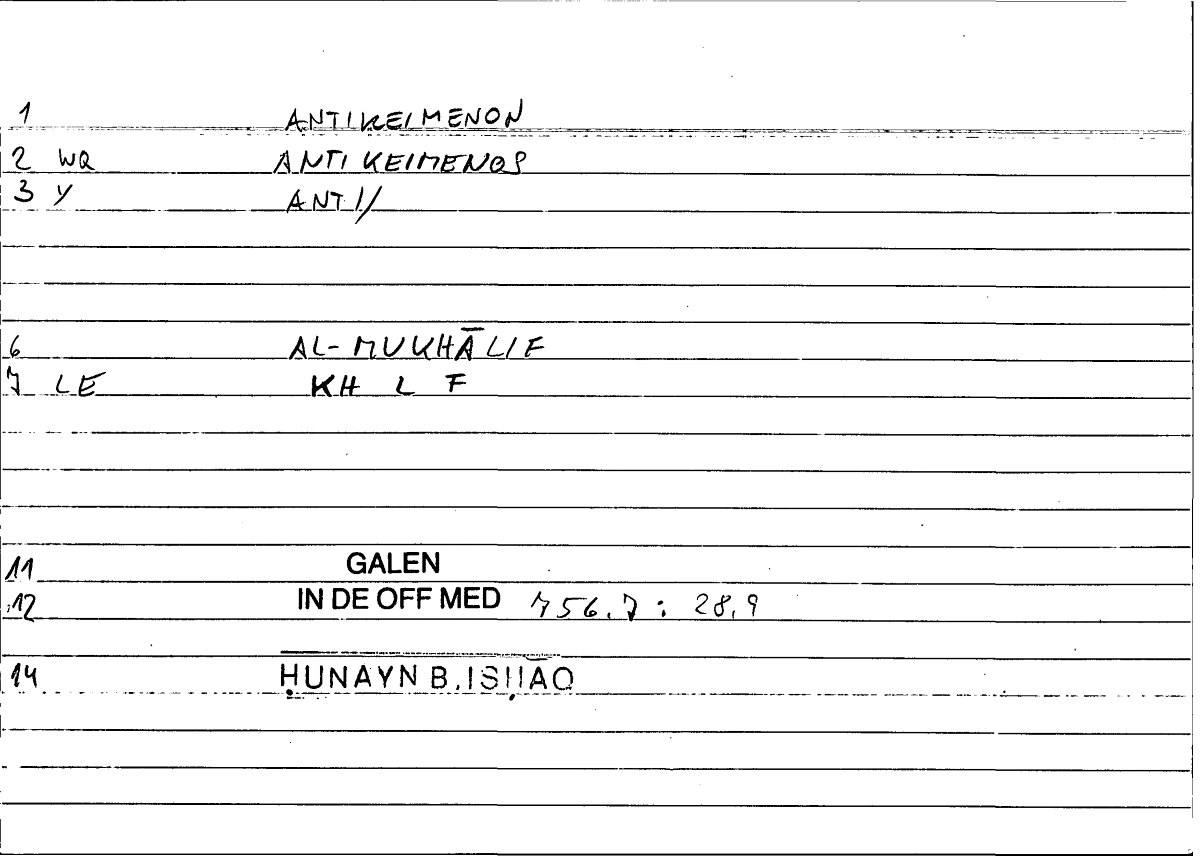 1 ANTIKEIMENON
2 WQ ANTIKEIMENOS
3 Y ANT//
6 AL-MUKHĀLIF
7 LE KH L F
11 GALEN
12 IN DE OFF MED 756.7 : 28,9
14 ḤUNAYN B. ISḤĀQ